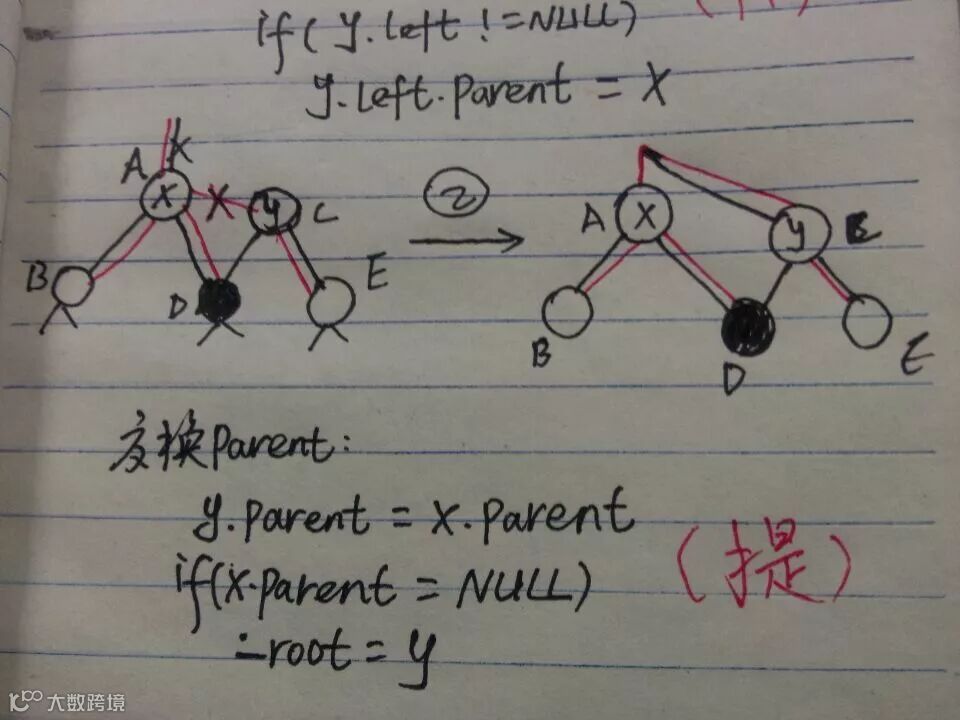 if(y.left!=NULL)
y.left.parent = x
A x y C
②
A x y
B D E
B D E
变换parent:
y.parent = x.parent
if(x.parent = NULL)
(提)
-root = y
大数跨境